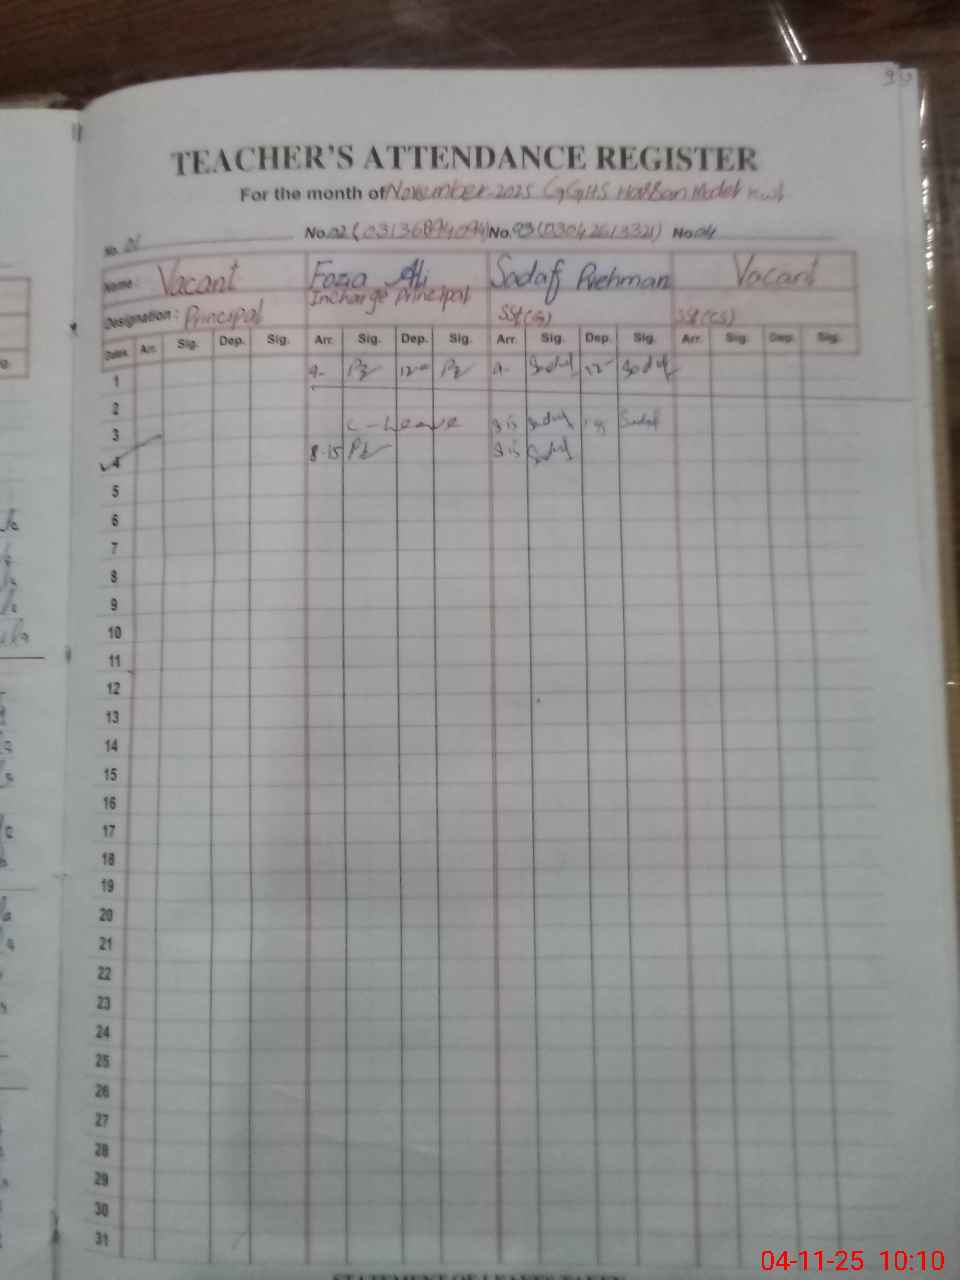 TEACHER'S ATTENDANCE REGISTER
For the month of November 2025 GGHS Model
No. 01 No. 02 (03136894094) No. 03 (03042613321) No. 04
Name : Vacant Fozia Ali Sadaf Rehman Vacant
Designation : Principal Incharge Principal SSt(G) SSt(CS)
Dates Arr. Sig. Dep. Sig. Arr. Sig. Dep. Sig. Arr. Sig. Dep. Sig. Arr. Sig. Dep. Sig.
1 9- 12- 9- Sadaf 12- Sadaf
2
3 C-Leave 8.15 Sadaf Sadaf
4 8.15 8.15 Sadaf
5
6
7
8
9
10
11
12
13
14
15
16
17
18
19
20
21
22
23
24
25
26
27
28
29
30
31
STATEMENT OF LEAVES TAKEN
04-11-25 10:10